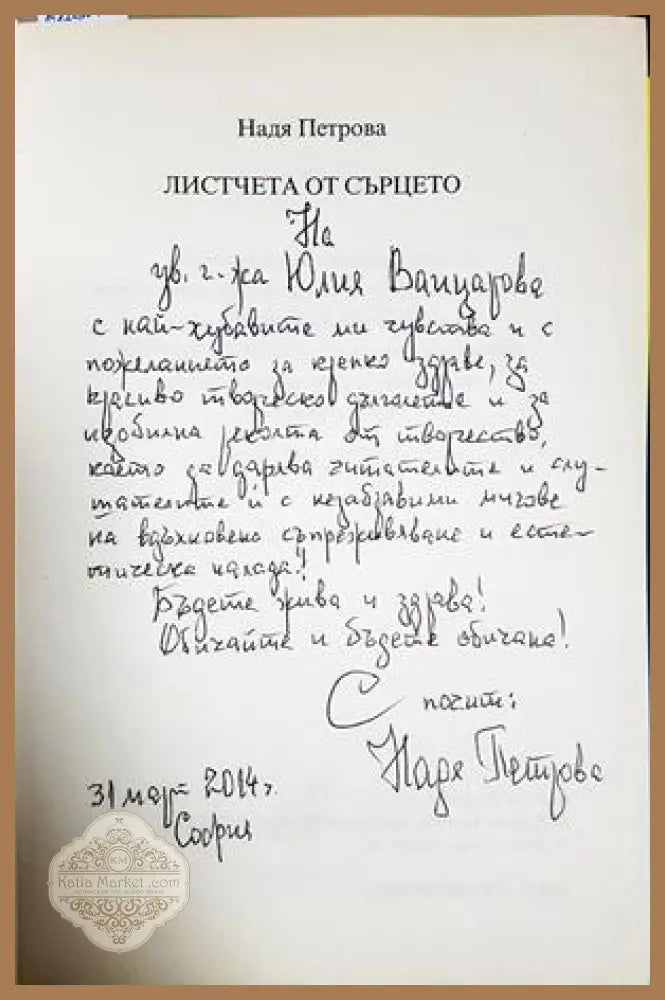 Надя Петрова
ЛИСТЧЕТА ОТ СЪРЦЕТО
На
ув. г-жа Юлия Ванцарова
с най-хубавите ми чувства и с
пожеланието за крепко здраве, за
красиво творческо дълголетие и за
изобилна реколта от творчество,
което да дарява читателите и слу-
шателите ѝ с незабравими мигове
на вдъхновено съпреживяване и есте-
тическа наслада!
Бъдете жива и здрава!
Обичайте и бъдете обичана!
С почит:
Надя Петрова
31 март 2014 г.
София
KM
Katia Market .com